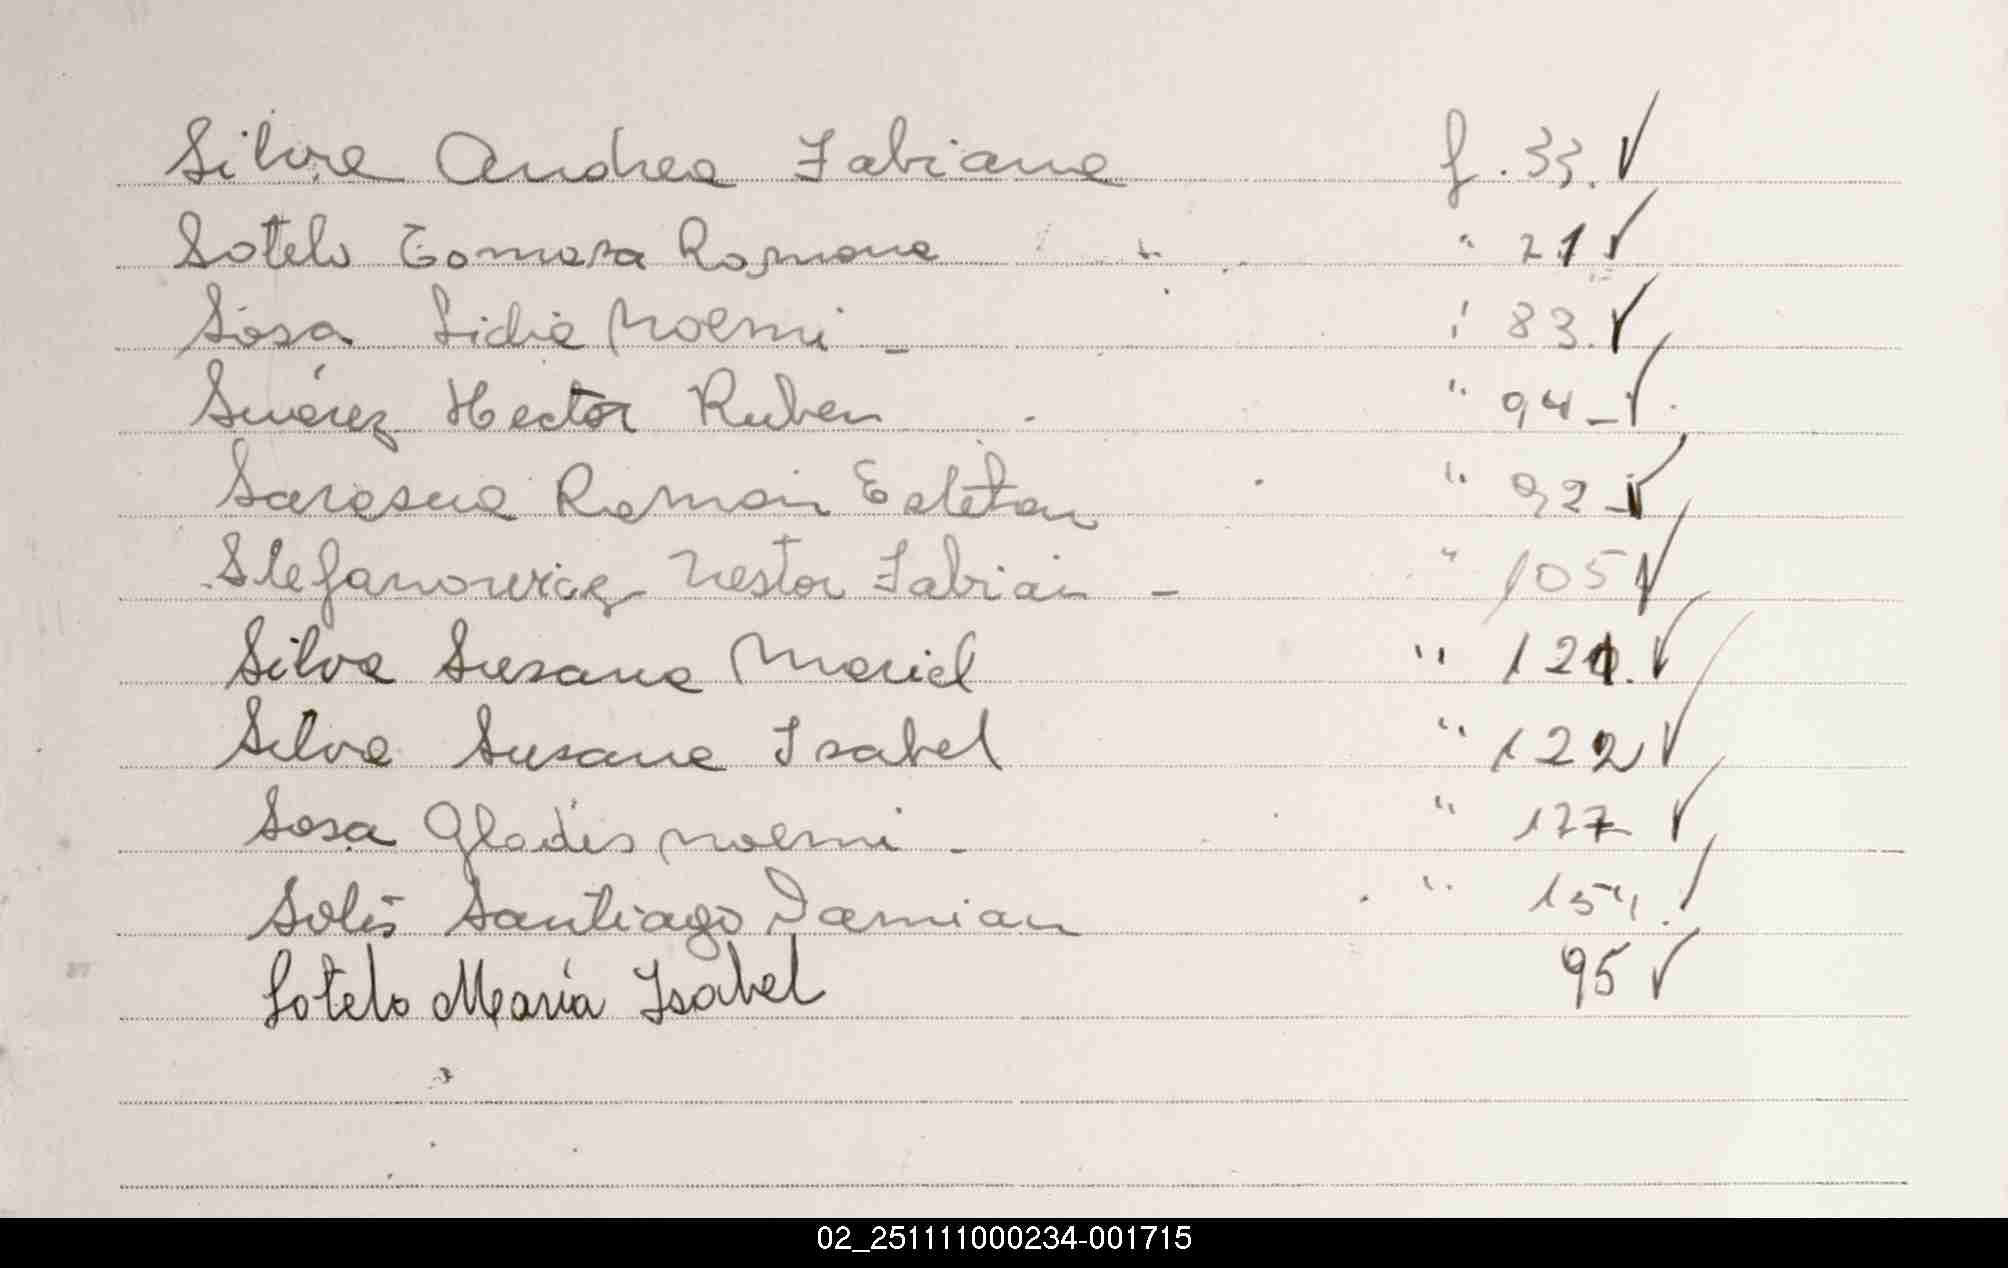 Silva Andrea Fabiana f. 33. ✓
Sotelo Tomasa Romana " 21 ✓
Sosa Lidia Noemi - " 83. ✓
Suárez Hector Ruben " 94 - ✓
Sarasua Ramon Esteban " 92 - ✓
Stefanowicz Nestor Fabian - " 105 ✓
Silva Susana Mariel " 121. ✓
Silva Susana Isabel " 122 ✓
Sosa Gladis Noemi - " 127 ✓
Solis Santiago Damian " 154. ✓
Sotelo María Isabel 95 ✓
02_251111000234-001715